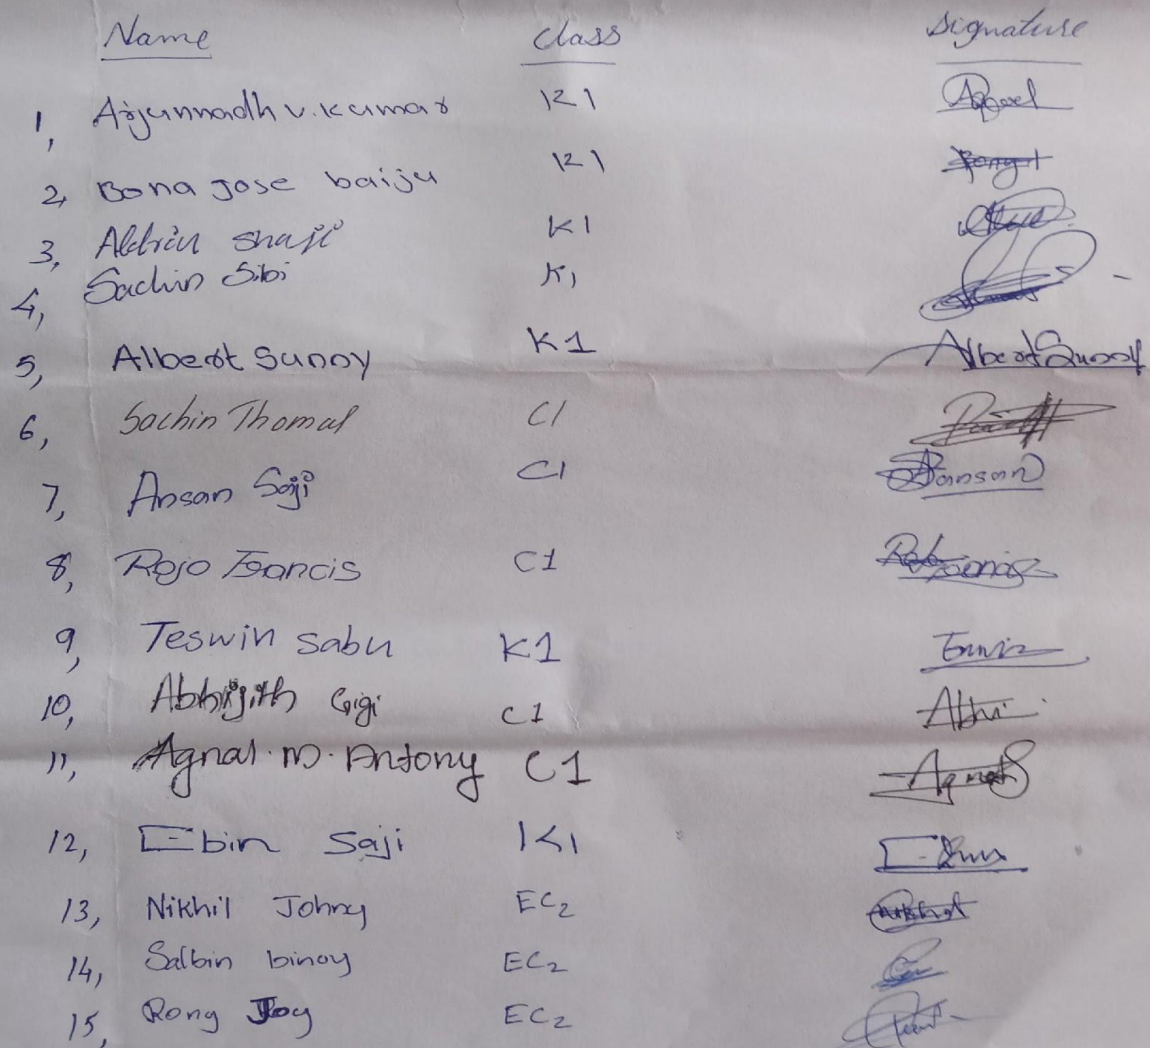 Name Class Signature
1, Arjunnadh v. kumar K1
2, Bona jose baiju K1
3, Aldrin shaji K1
4, Sachin Sibi K1
5, Albert Sunny K1 Albert Sunny
6, Sachin Thomas C1
7, Ansan Saji C1
8, Rojo Francis C1
9, Teswin sabu K1
10, Abhijith Gigi C1 Abhi
11, Agnal. M. Antony C1 Agnal
12, Ebin Saji K1
13, Nikhil Johny EC2
14, Salbin binoy EC2
15, Rony Joy EC2